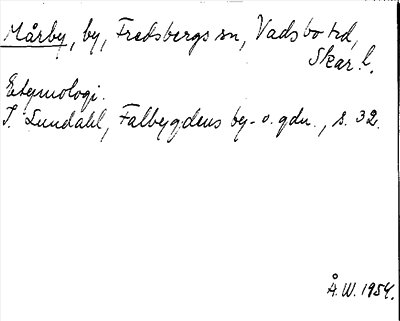 Mårby, by, Fredsbergs sn, Vadsbo hd,
Skar. l.
Etymologi.
I. Lundahl, Falbygdens by- o. gdn., s. 32.
Å.W. 1954.